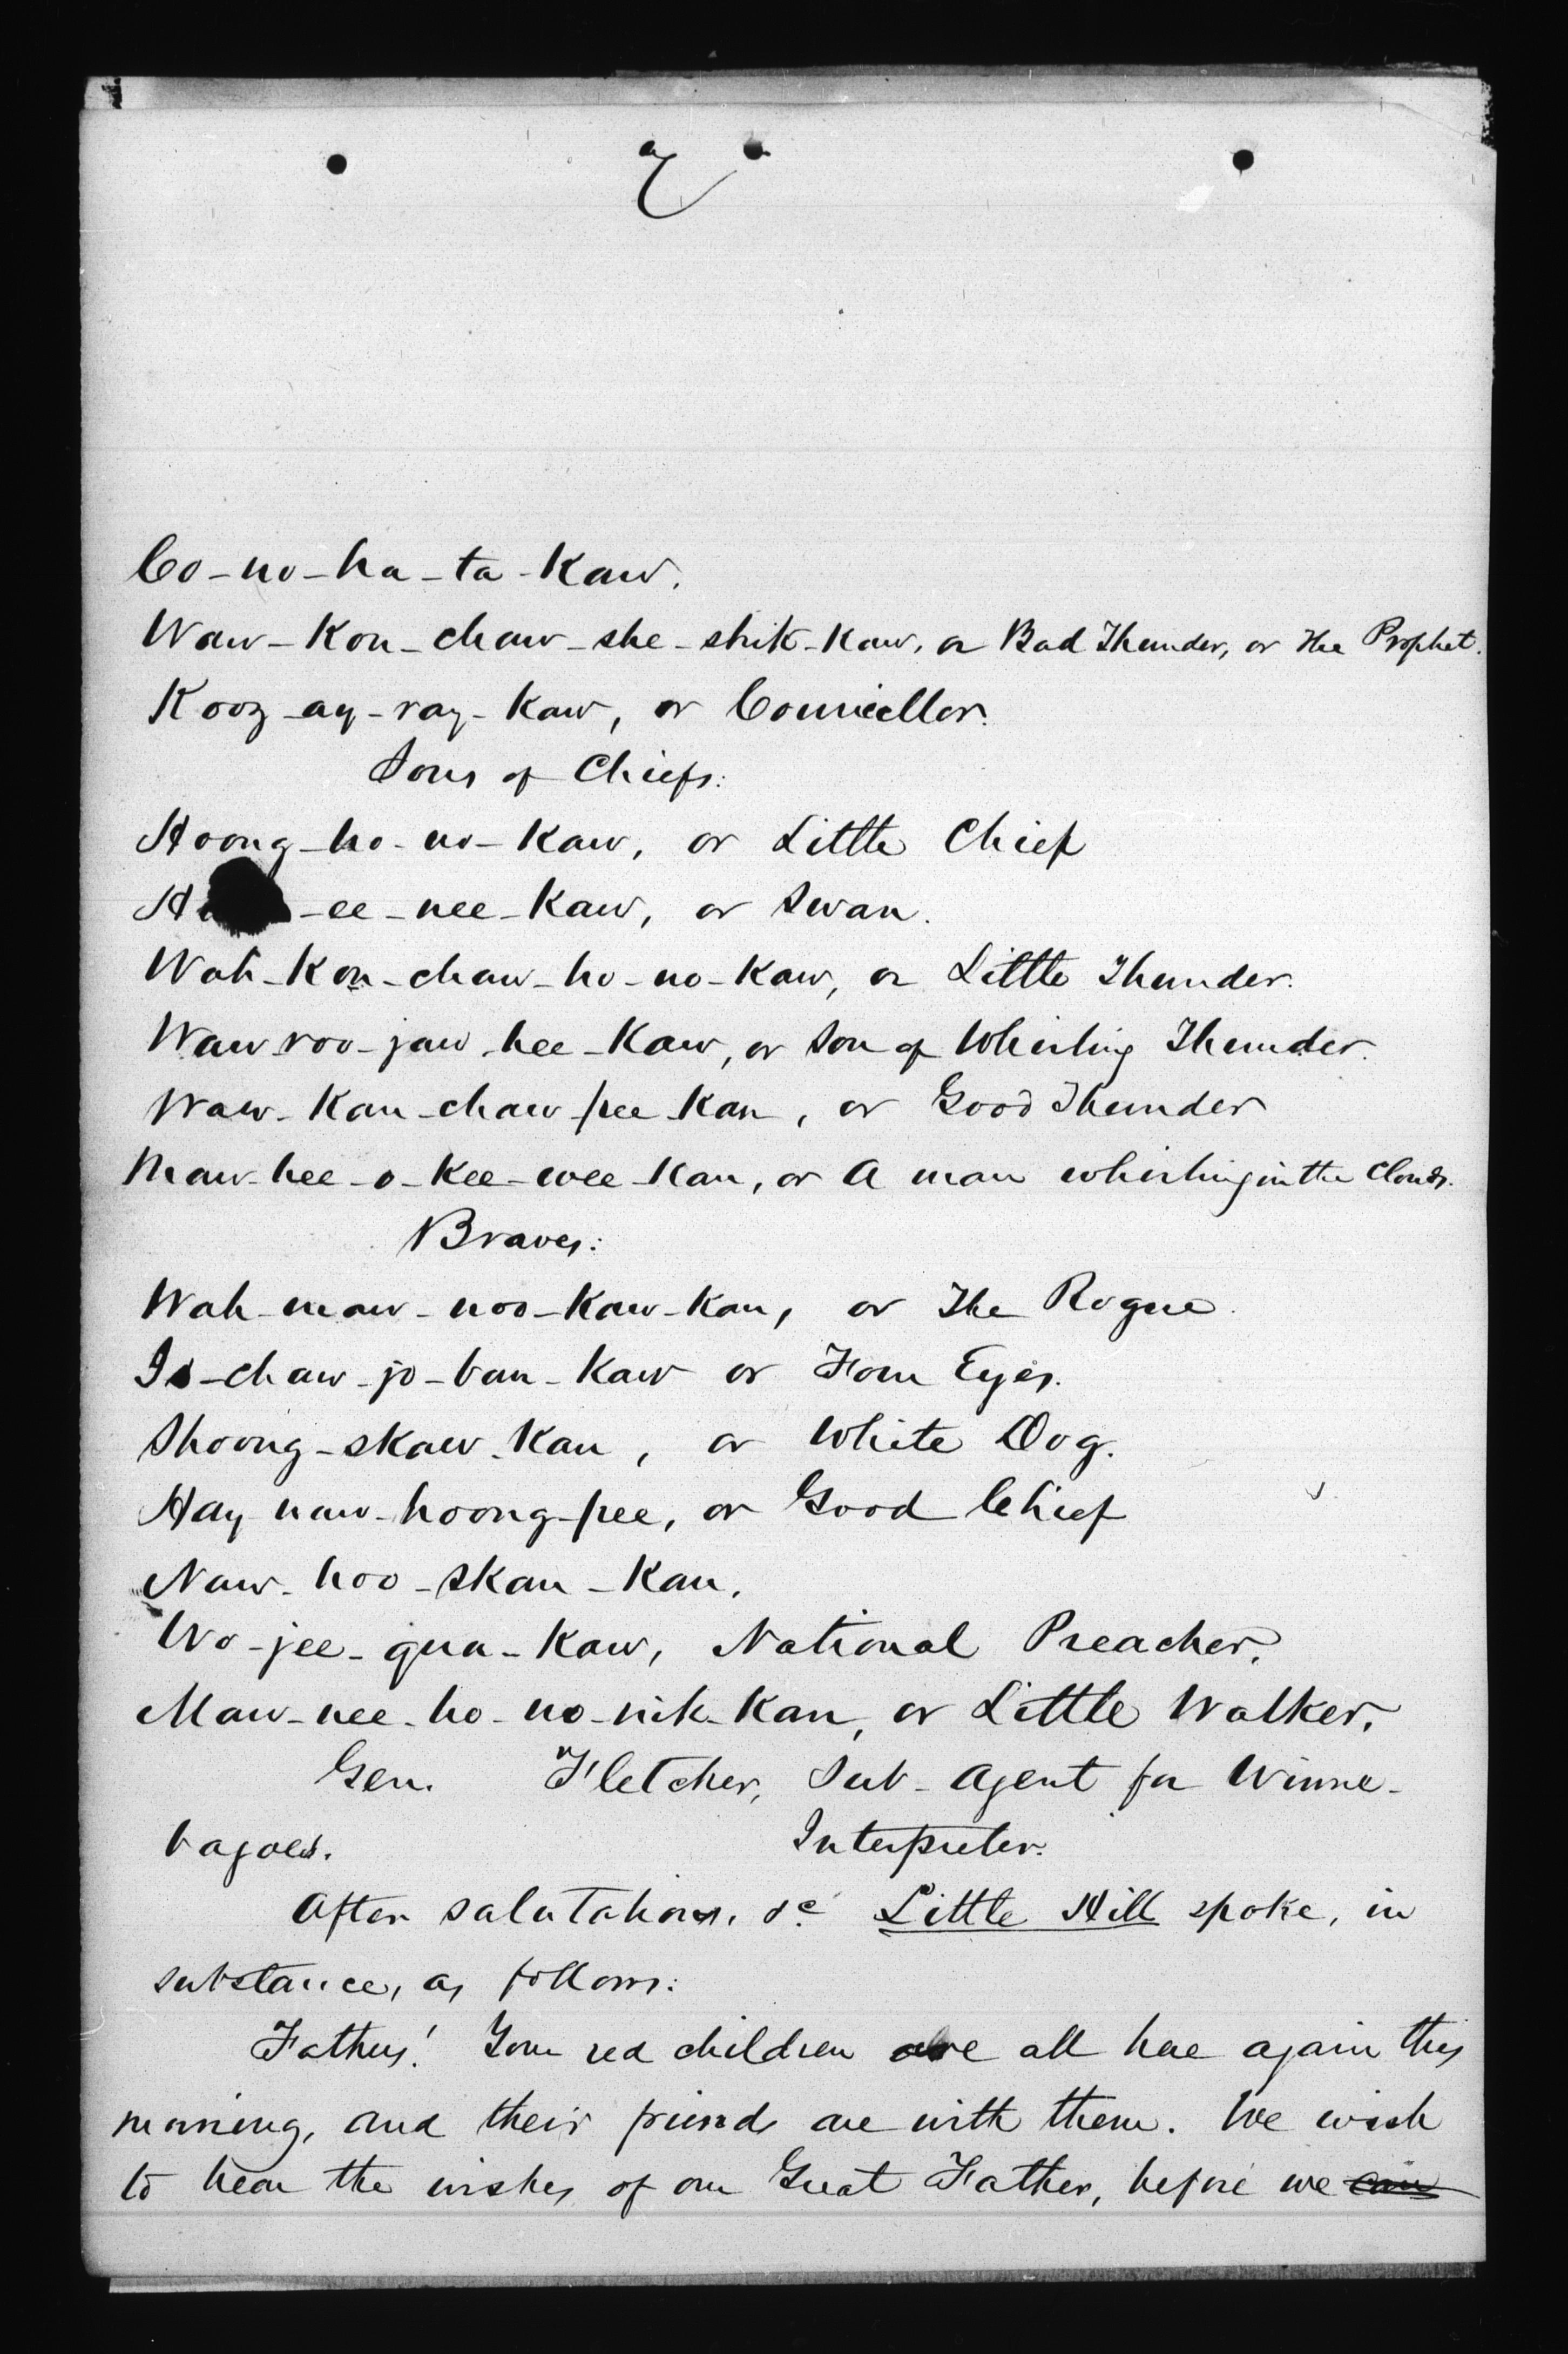 2
Co-no-ha-ta-Kaw.
Waw-Kon-chaw-she-shik-Kaw, or Bad Thunder, or the Prophet.
Kooz-ay-ray-Kaw, or Councillor.
Sons of Chiefs:
Hoong-ho-no-Kaw, or Little Chief
-ee-nee-Kaw, or Swan.
Wah-Kon-chaw-ho-no-Kaw, or Little Thunder.
Waw-roo-jaw-hee-Kaw, or Son of Whirling Thunder.
Waw-Kau-chaw-pee-Kau, or Good Thunder
Maw-hee-o-Kee-wee-Kau, or A man whirling in the Clouds.
Braves:
Wah-maw-noo-Kaw-Kau, or The Rogue.
Is-chaw-jo-bau-Kaw or Four Eyes.
Shoong-skaw-Kau, or White Dog.
Hay-naw-hoong-pee, or Good Chief
Naw-hoo-skau-Kau.
Wo-jee-qua-Kaw, National Preacher.
Maw-nee-ho-no-nik-Kau, or Little Walker.
Gen. Fletcher, Sub-Agent for Winne-
bagoes. Interpreter.
After salutations, &c Little Hill spoke, in
substance, as follows:
Father! Your red children are all here again this
morning, and their friends are with them. We wish
to hear the wishes of our Great Father, before we can